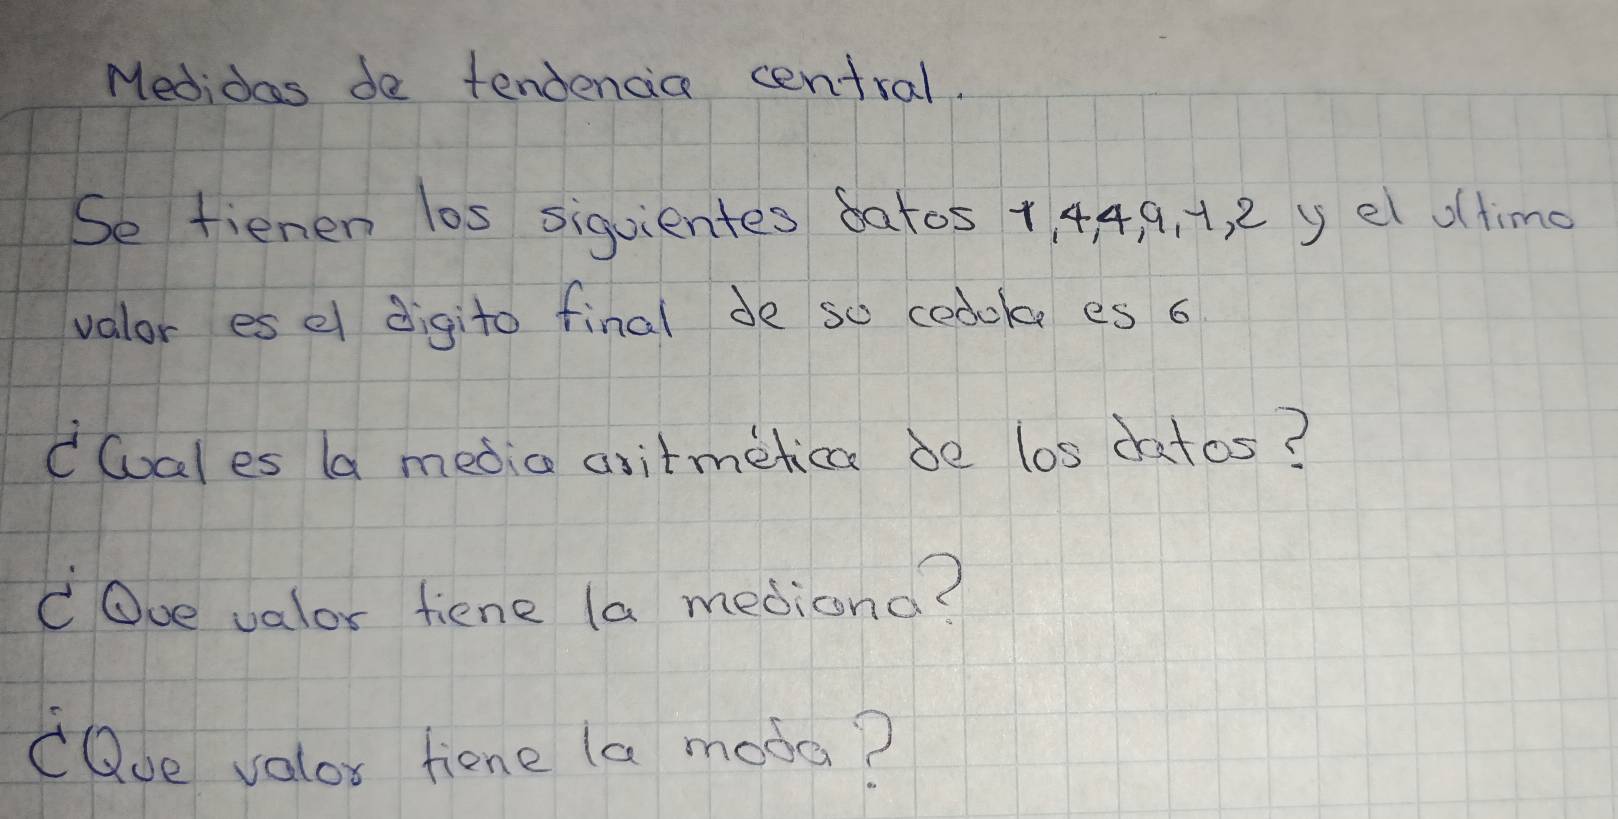 Medidas de tendencia central.
Se tienen los siguientes datos 1,4,4,9,1,2 y el ultimo
valor es el digito final de su cedula es 6
¿Cual es la media aritmética de los datos?
¿Que valor tiene la mediana?
¿Que valor tiene la moda?